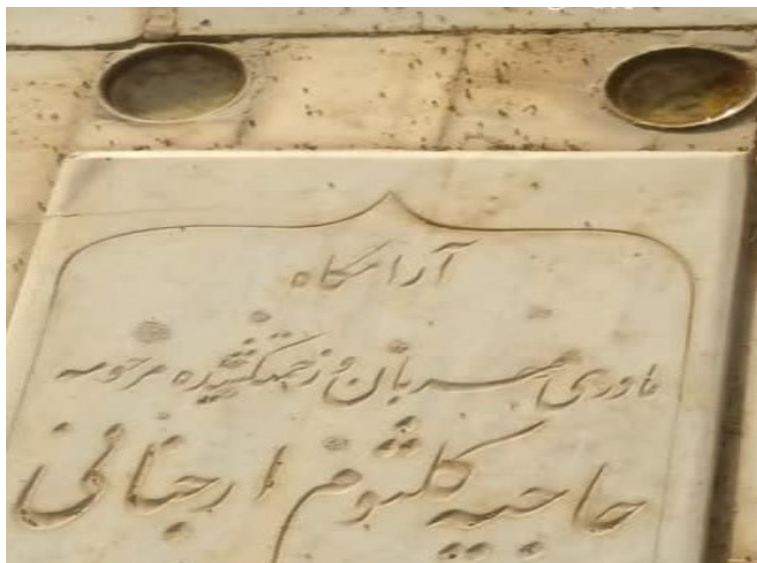 آرامگاه
مادری مهربان و زحمتکشیده مرحومه
حاجیه کلثوم ارجنانی